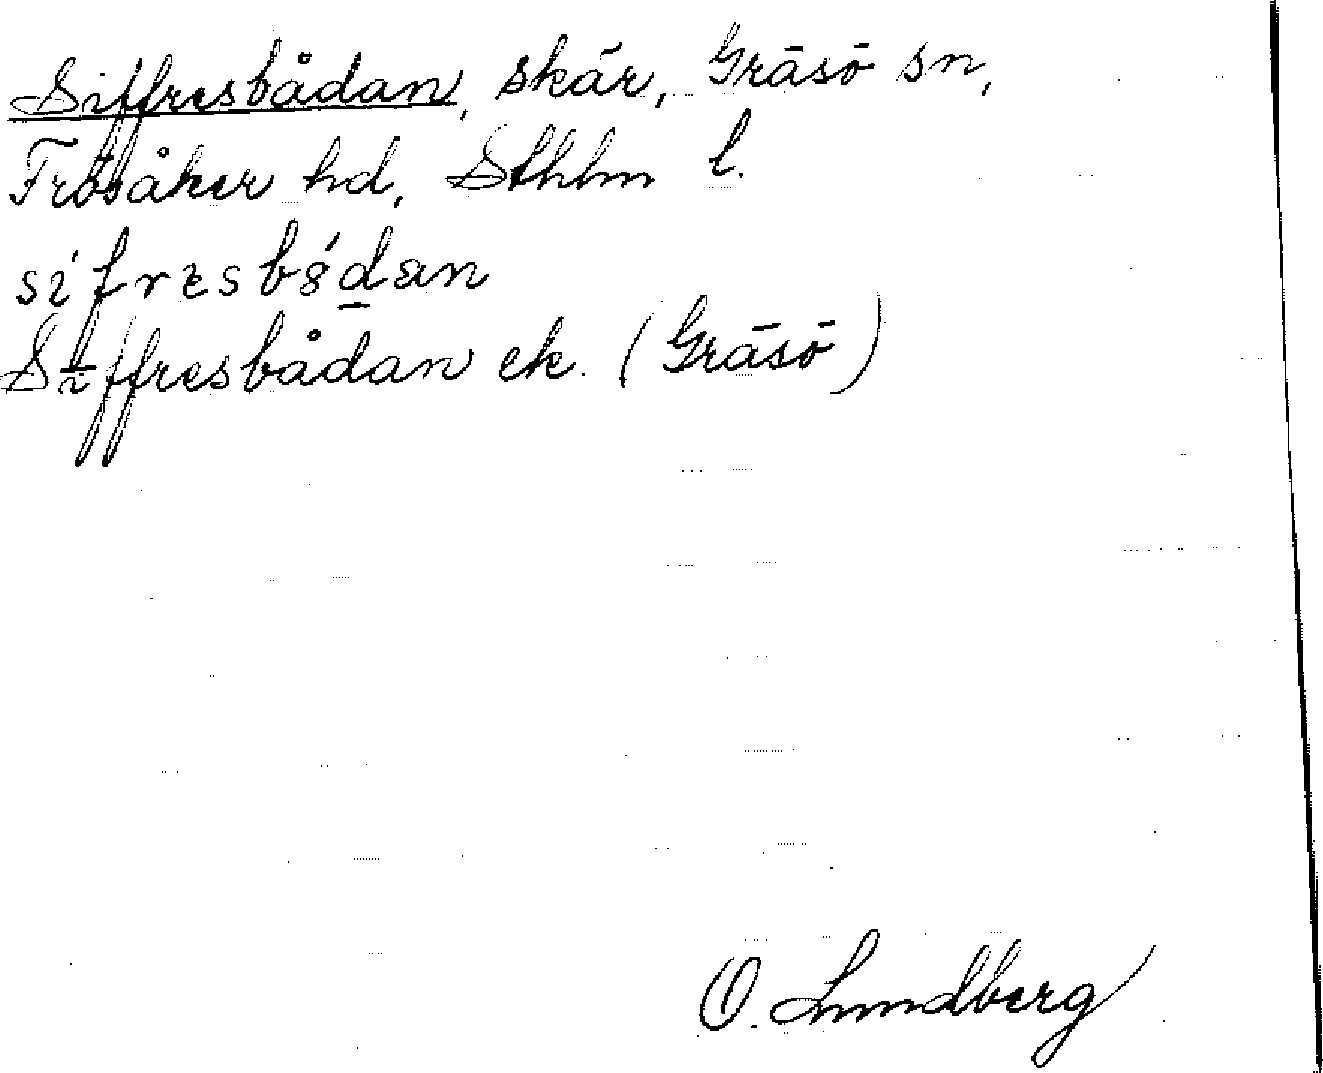 Siffresbådan, skär, Gräsö sn,
Frösåker hd, Sthlm l.
sifresbådan
Siffresbådan ek. (Gräsö)
O. Lundberg